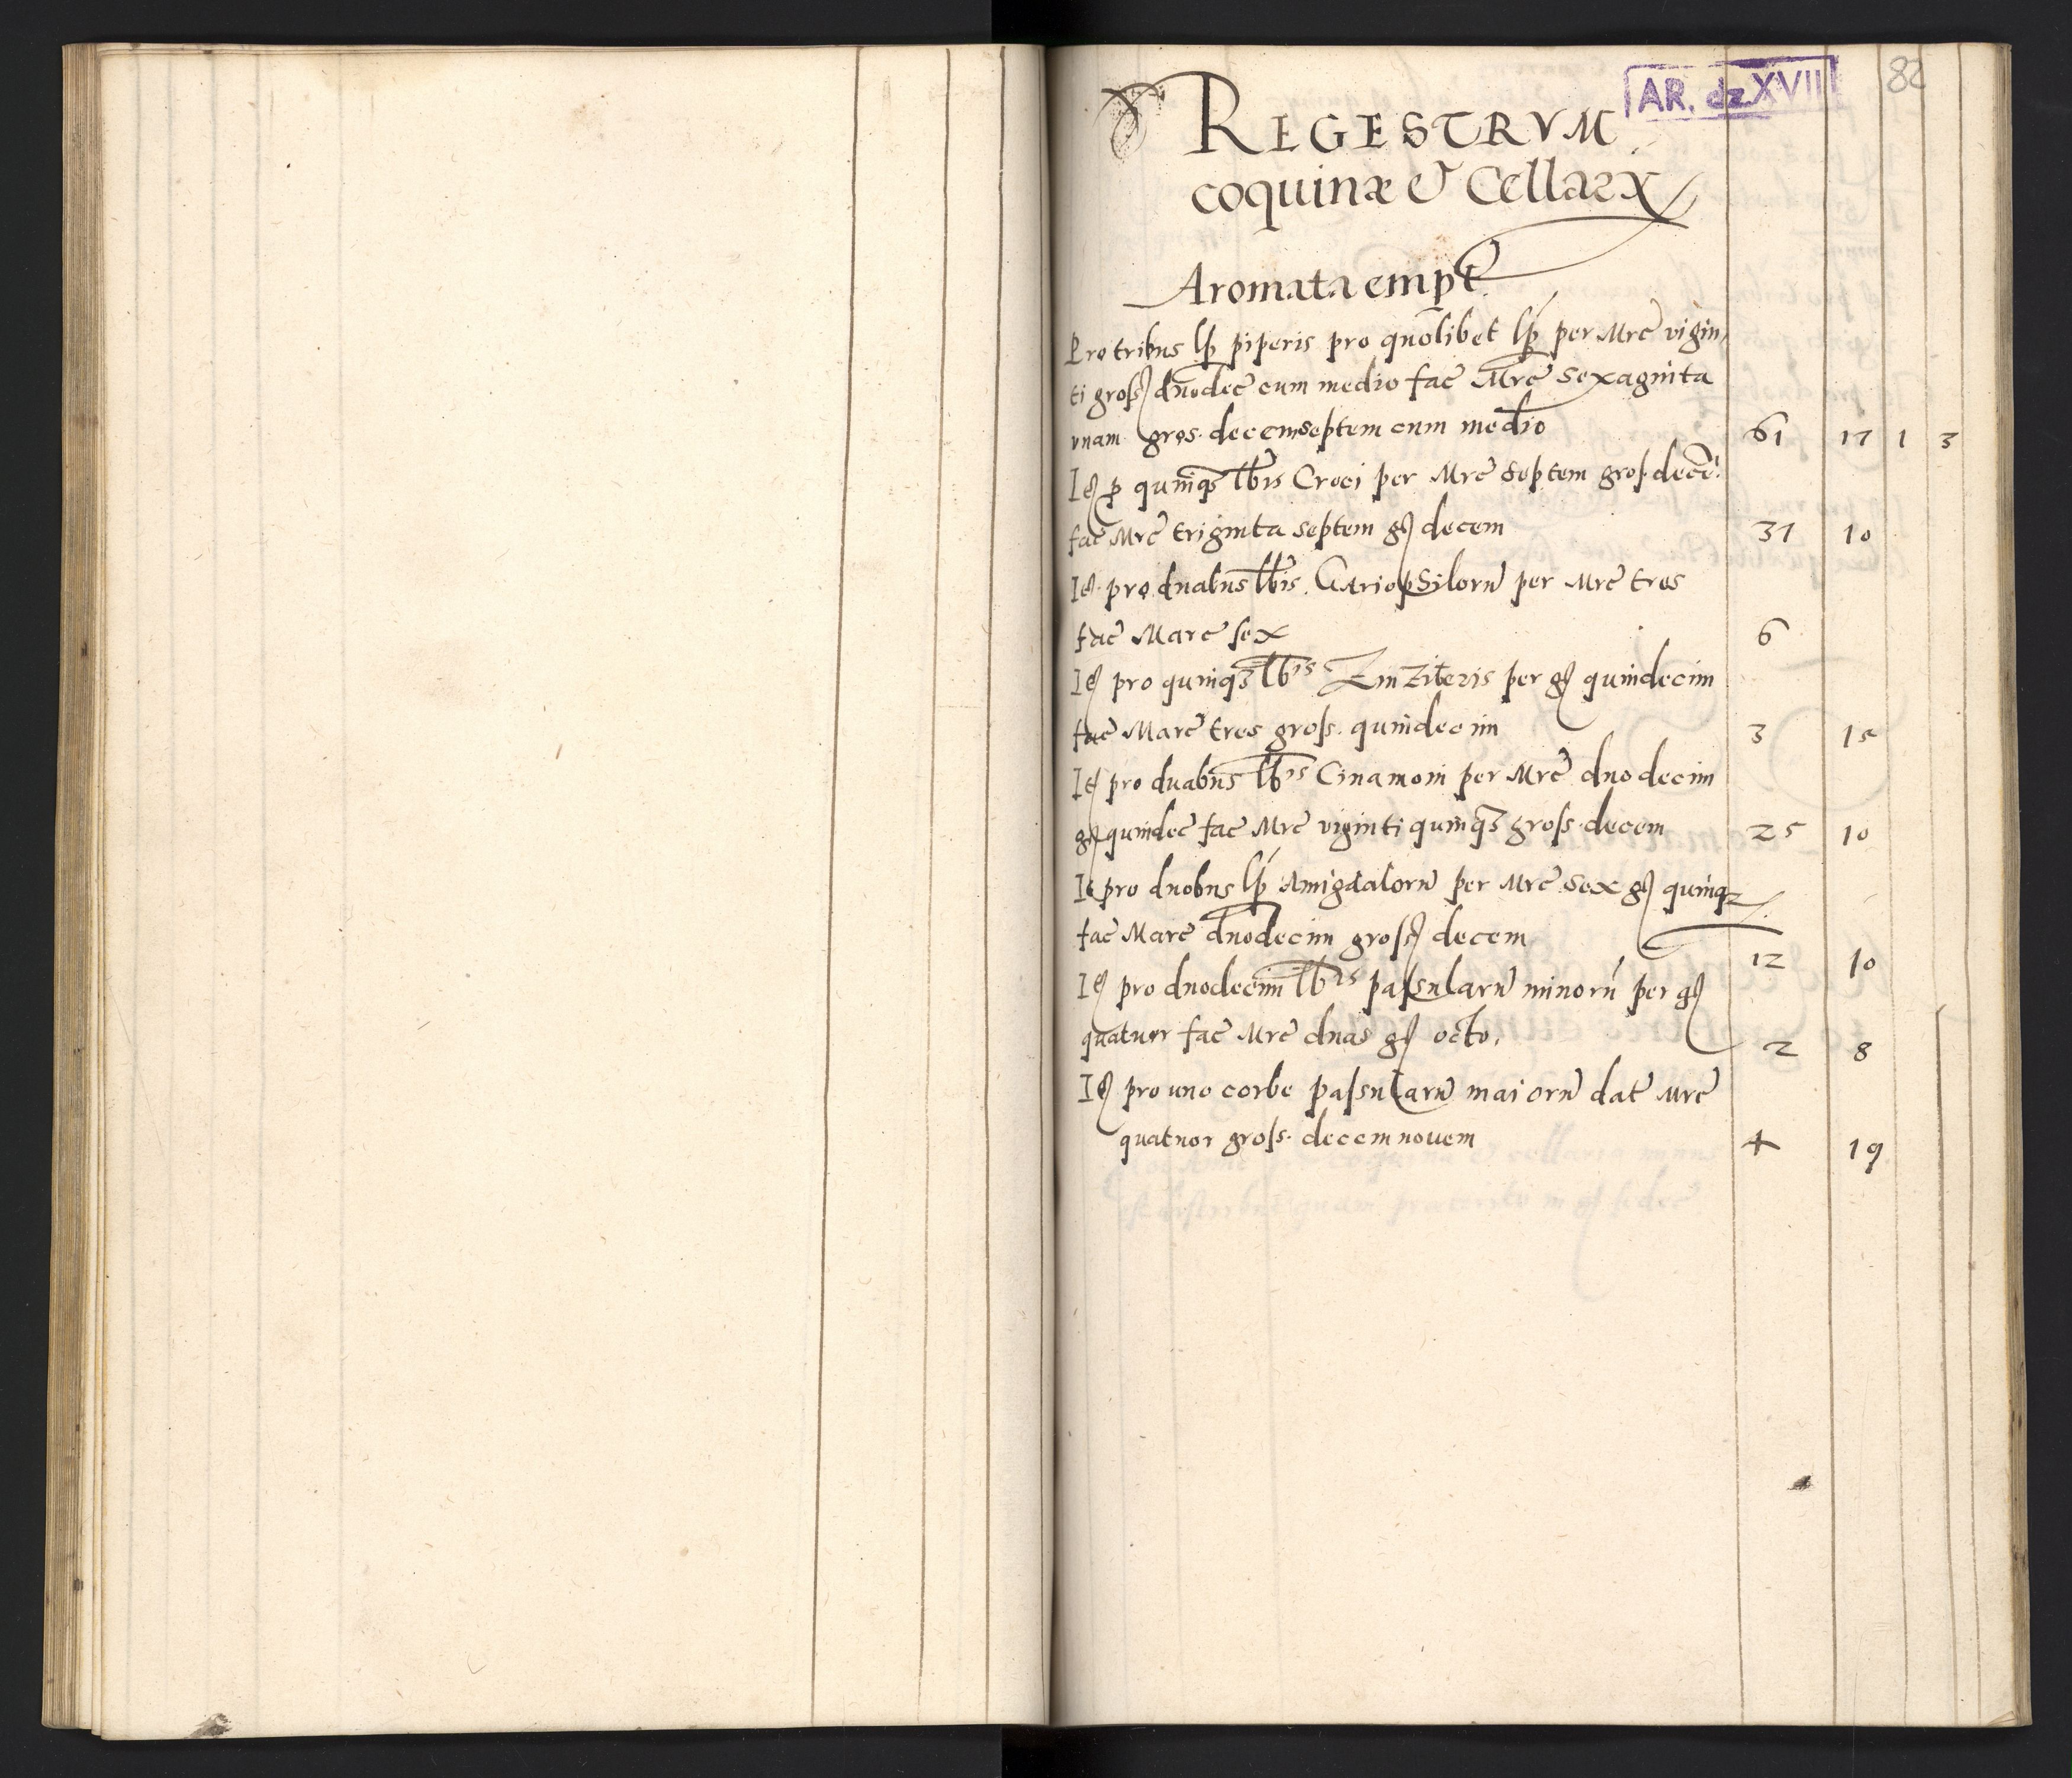 AR. dz XVII
82
REGESTRVM
coquinæ & Cellarx
Aromata empt
Pro tribus lp̄ piperis pro quolibet lp̄ per Mrc̄ vigin,
ti gross duodec̄ cum medio fac̄ Mrc̄ sexaginta
vnam gros. decemseptem cum medio 61 17 1 3
Itē p quinqȝ lb̄is Croci per Mrc̄ septem gros. decē
fac̄ Mrc̄ triginta septem gs̄ decem 37 10
Itē pro duabus lb̄is Gariopsilorū per Mrc̄ tres
fac̄ Marc̄ sex 6
Itē pro quinqȝ lb̄is Zinziberis per gs̄ quindecim
fac̄ Marc̄ tres gross. quindecim 3 15
Itē pro duabus lb̄is Cinamomi per Mrc̄ duodecim
gs̄ quindec̄ fac̄ Mrc̄ viginti quinqȝ gross. decem 25 10
Itē pro duobus lp̄ Amigdalorū per Mrc̄ sex gs̄ quinqȝ
fac̄ Marc̄ duodecim gross decem 12 10
Itē pro duodecim lb̄is passularū minorū per gs̄
quatuor fac̄ Mrc̄ duas gs̄ octo. 2 8
Itē pro uno corbe passularū maiorū dat̄ Mrc̄
quatuor gross. decemnouem 4 19